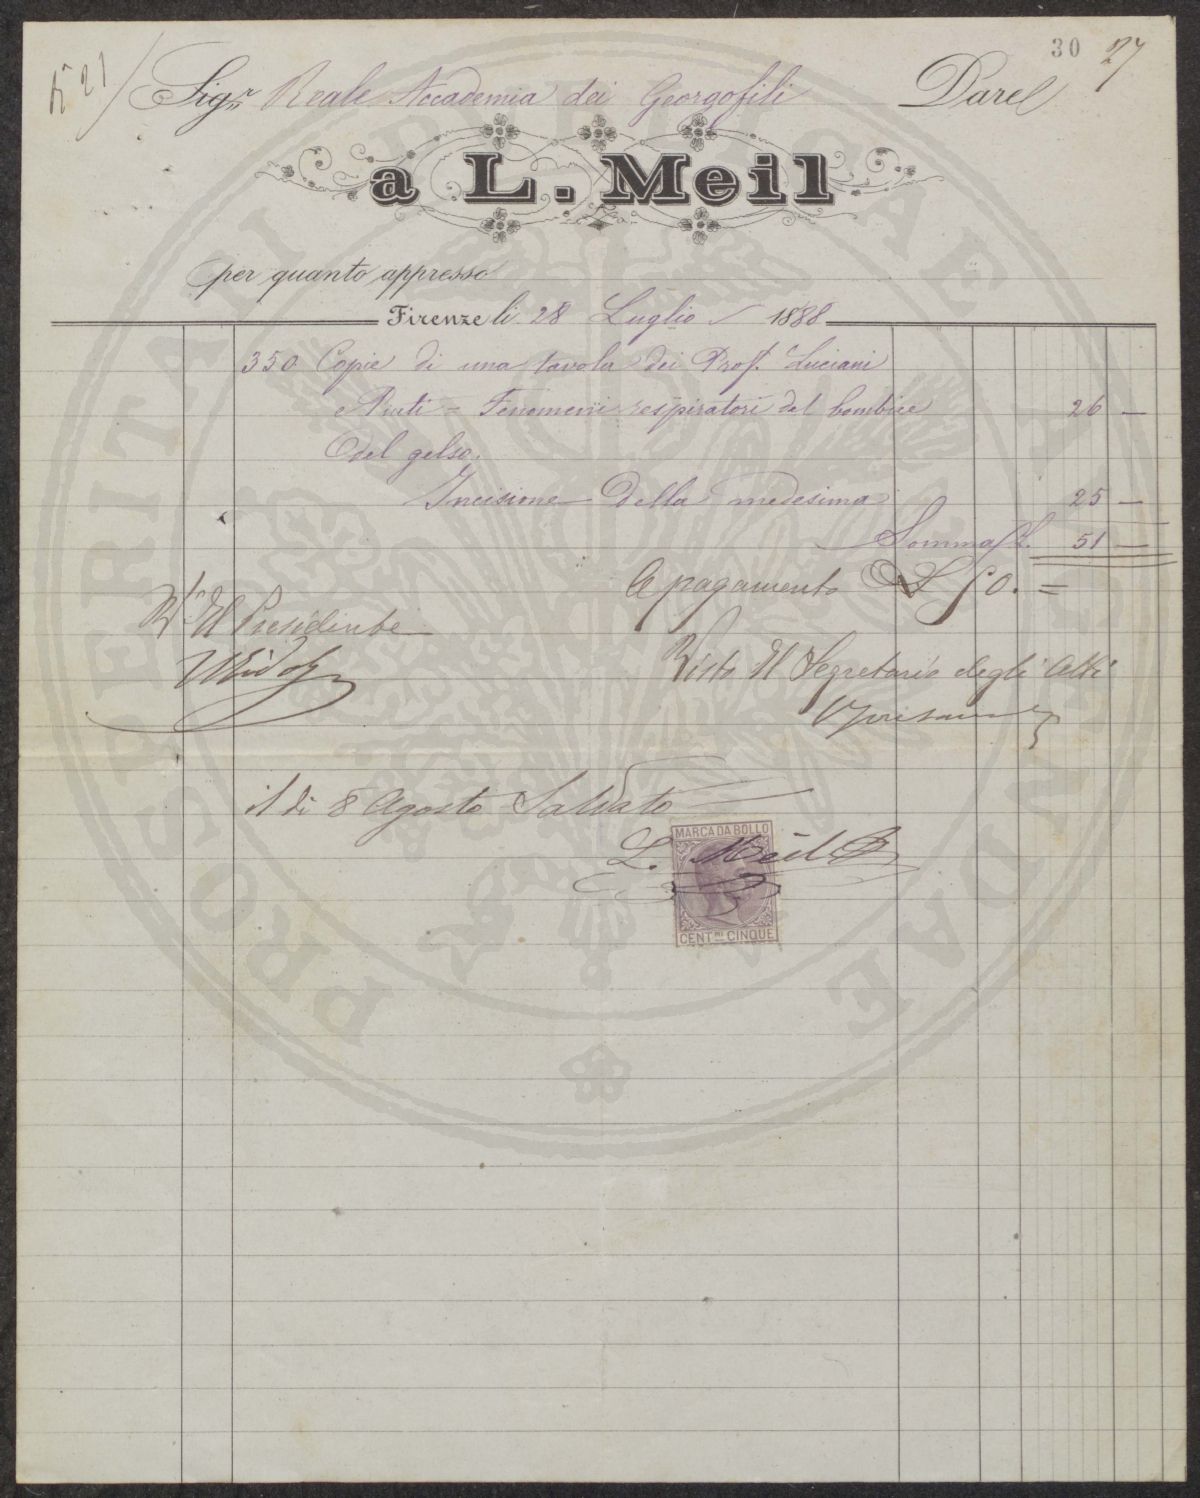 30 27
N° 21
Sigr Reale Accademia dei Georgofili Dare
a L. Meil
per quanto appresso
Firenze li 28 Luglio 1888
350 Copie di una tavola dei Prof. Luciani
e Piuti = Fenomeni respiratori del bombice 26 —
del gelso.
Incisione della medesima 25 —
Somma L. 51 —
A pagamento L 50. =
Il Presidente
Visto Il Segretario degli Atti
il di 8 Agosto Saldato
MARCA DA BOLLO
L. Meil
CENT.MI CINQUE
PROSPERITATI PUBLICAE AUGENDAE